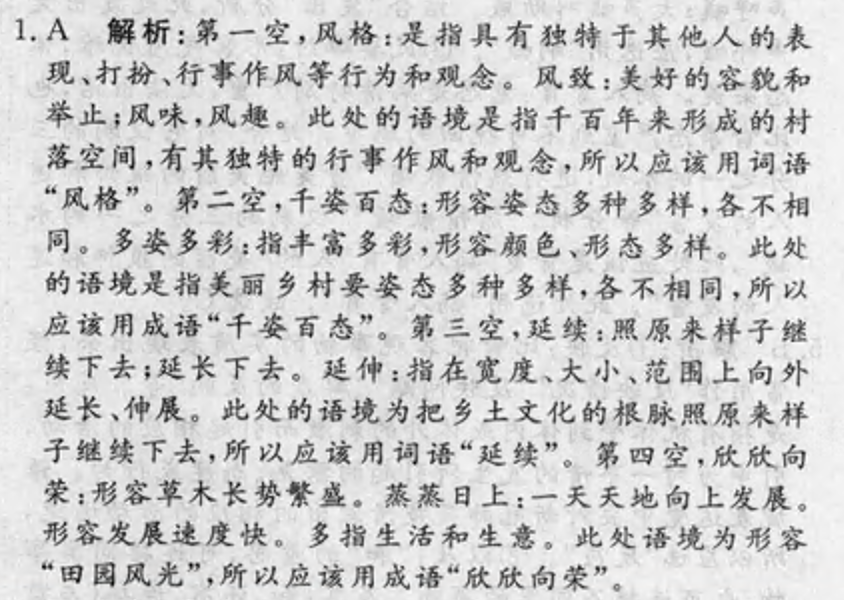 1. A　解析:第一空,风格:是指具有独特于其他人的表
现、打扮、行事作风等行为和观念。风致:美好的容貌和
举止;风味,风趣。此处的语境是指千百年来形成的村
落空间,有其独特的行事作风和观念,所以应该用词语
“风格”。第二空,千姿百态:形容姿态多种多样,各不相
同。多姿多彩:指丰富多彩,形容颜色、形态多样。此处
的语境是指美丽乡村要姿态多种多样,各不相同,所以
应该用成语“千姿百态”。第三空,延续:照原来样子继
续下去;延长下去。延伸:指在宽度、大小、范围上向外
延长、伸展。此处的语境为把乡土文化的根脉照原来样
子继续下去,所以应该用词语“延续”。第四空,欣欣向
荣:形容草木长势繁盛。蒸蒸日上:一天天地向上发展。
形容发展速度快。多指生活和生意。此处语境为形容
“田园风光”,所以应该用成语“欣欣向荣”。